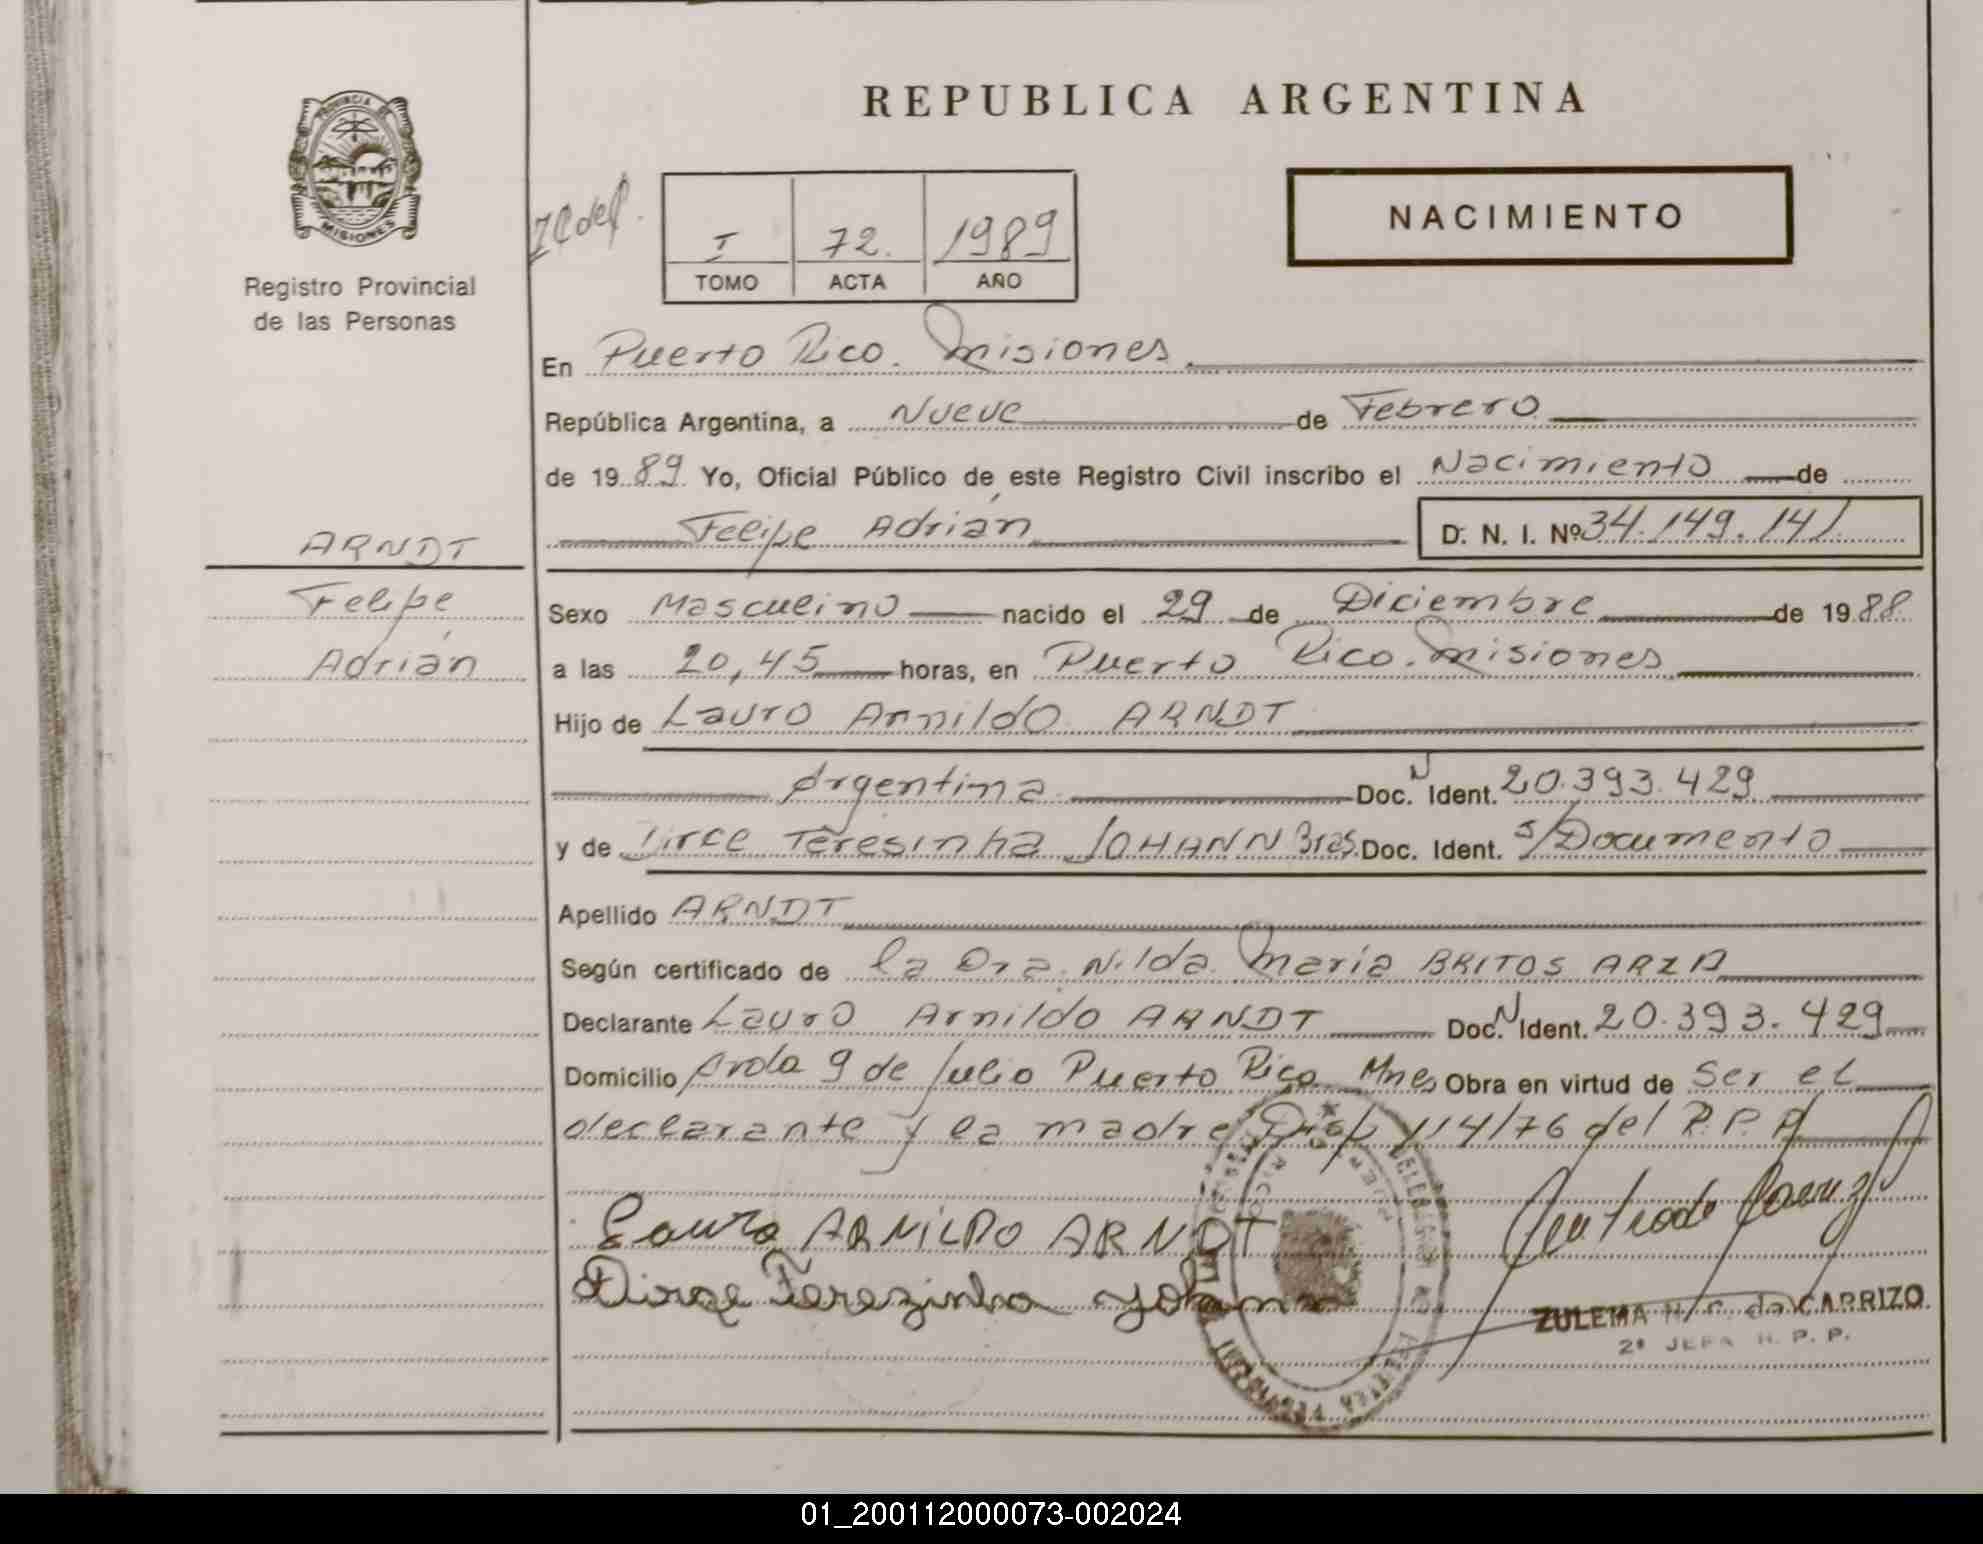 REPUBLICA ARGENTINA
PROVINCIA DE
MISIONES
Registro Provincial
de las Personas
I 72. 1989
TOMO ACTA AÑO
NACIMIENTO
En Puerto Rico. Misiones
República Argentina, a Nueve de Febrero
de 1989 Yo, Oficial Público de este Registro Civil inscribo el Nacimiento de
Felipe Adrián
D. N. I. Nº 34.149.141
ARNDT
Felipe
Adrián
Sexo Masculino nacido el 29 de Diciembre de 1988
a las 20,45 horas, en Puerto Rico. Misiones
Hijo de Lauro Arnildo ARNDT
Argentina Doc. N Ident. 20.393.429
y de Dirce Teresinha JOHANN Bras. Doc. Ident. s/Documento
Apellido ARNDT
Según certificado de la Dra. Nilda María BRITOS ARZA
Declarante Lauro Arnildo ARNDT Doc. N Ident. 20.393.429
Domicilio Avda 9 de Julio Puerto Rico Mnes Obra en virtud de Ser el
declarante y la madre Disp 114/76 del R.P.P.
Lauro ARNILDO ARNDT
Dirce Terezinha Johann
ZULEMA de CARRIZO
2º JEFA R. P. P.
01_200112000073-002024